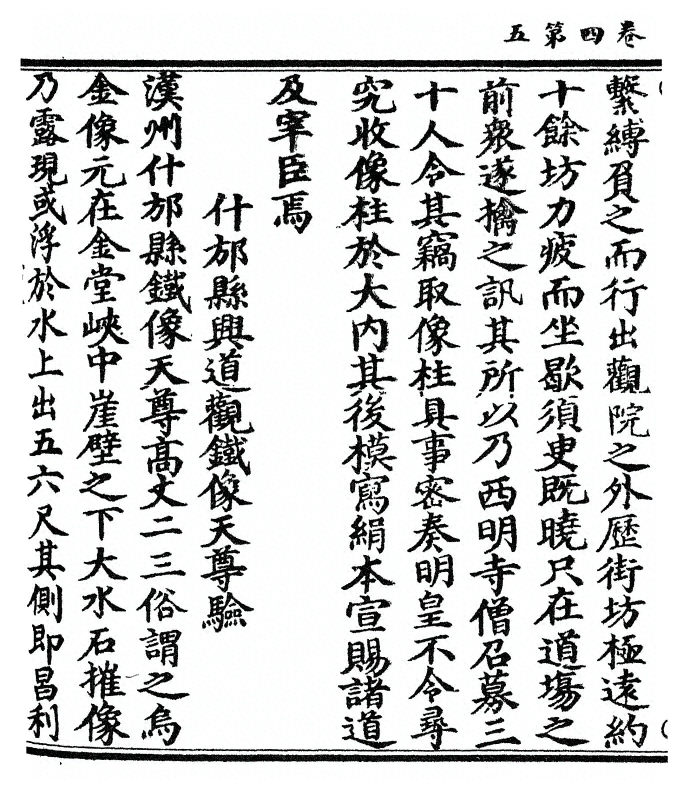 卷四第五
繫縛負之而行出觀院之外歷街坊極遠約
十餘坊力疲而坐歇須臾既曉只在道場之
前衆遂擒之訊其所以乃西明寺僧召募三
十人令其竊取像柱具事密奏明皇不令尋
究收像柱於大内其後模寫絹本宣賜諸道
及宰臣焉
什邡縣興道觀鐵像天尊驗
漢州什邡縣鐵像天尊高丈二三俗謂之烏
金像元在金堂峽中崖壁之下大水石摧像
乃露現或浮於水上出五六尺其側即昌利